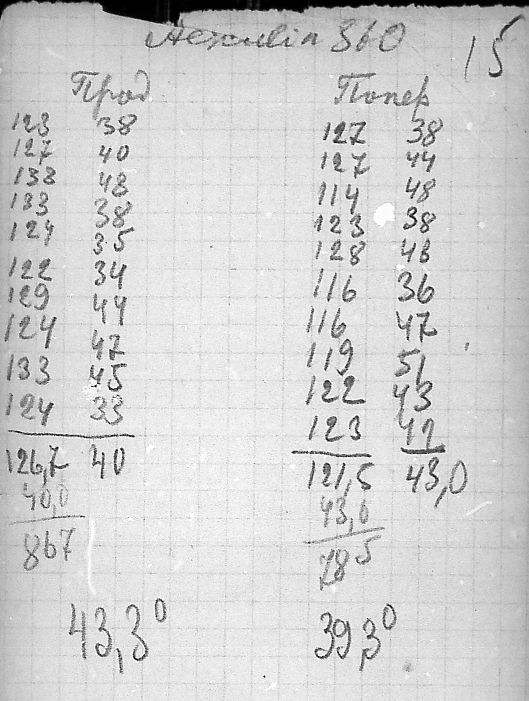 360 15
Прод Попер
123 38 127 38
127 40 127 44
138 48 114 48
133 38 123 38
124 35 128 46
122 34 116 36
129 44 116 47
124 47 119 51
133 45 122 43
124 33 123 42
126,7 40 121,5 43,0
40,0 43,0
867 785
43,3⁰ 39,3⁰